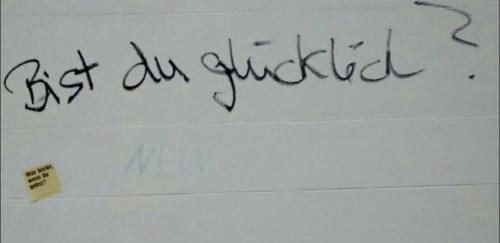 Bist du glücklich?
Was bleibt,
wenn du
gehst?